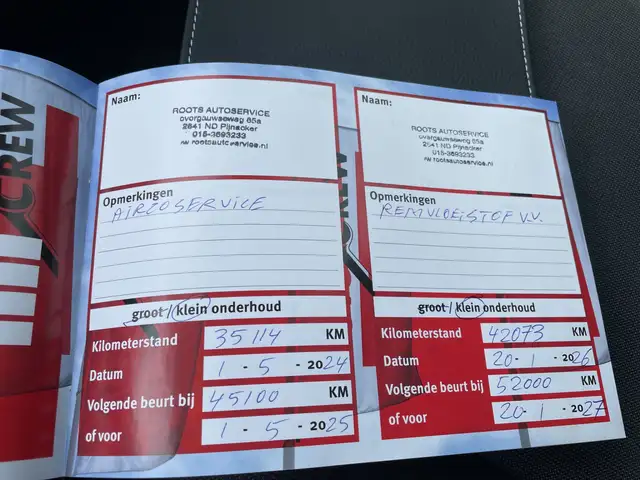 CREW
Naam:
ROOTS AUTOSERVICE
overgauwseweg 65a
2641 ND Pijnacker
015-3693233
rootsautoservice.nl
Opmerkingen
AIRCOSERVICE
groot / klein onderhoud
Kilometerstand 35114 KM
Datum 1 - 5 - 2024
Volgende beurt bij 45100 KM
of voor 1 - 5 - 2025
Naam:
ROOTS AUTOSERVICE
overgauwseweg 65a
2641 ND Pijnacker
015-3693233
rootsautoservice.nl
Opmerkingen
REMVLOEISTOF V.V.
groot / klein onderhoud
Kilometerstand 42073 KM
Datum 20 - 1 - 2026
Volgende beurt bij 52000 KM
of voor 20 - 1 - 2027